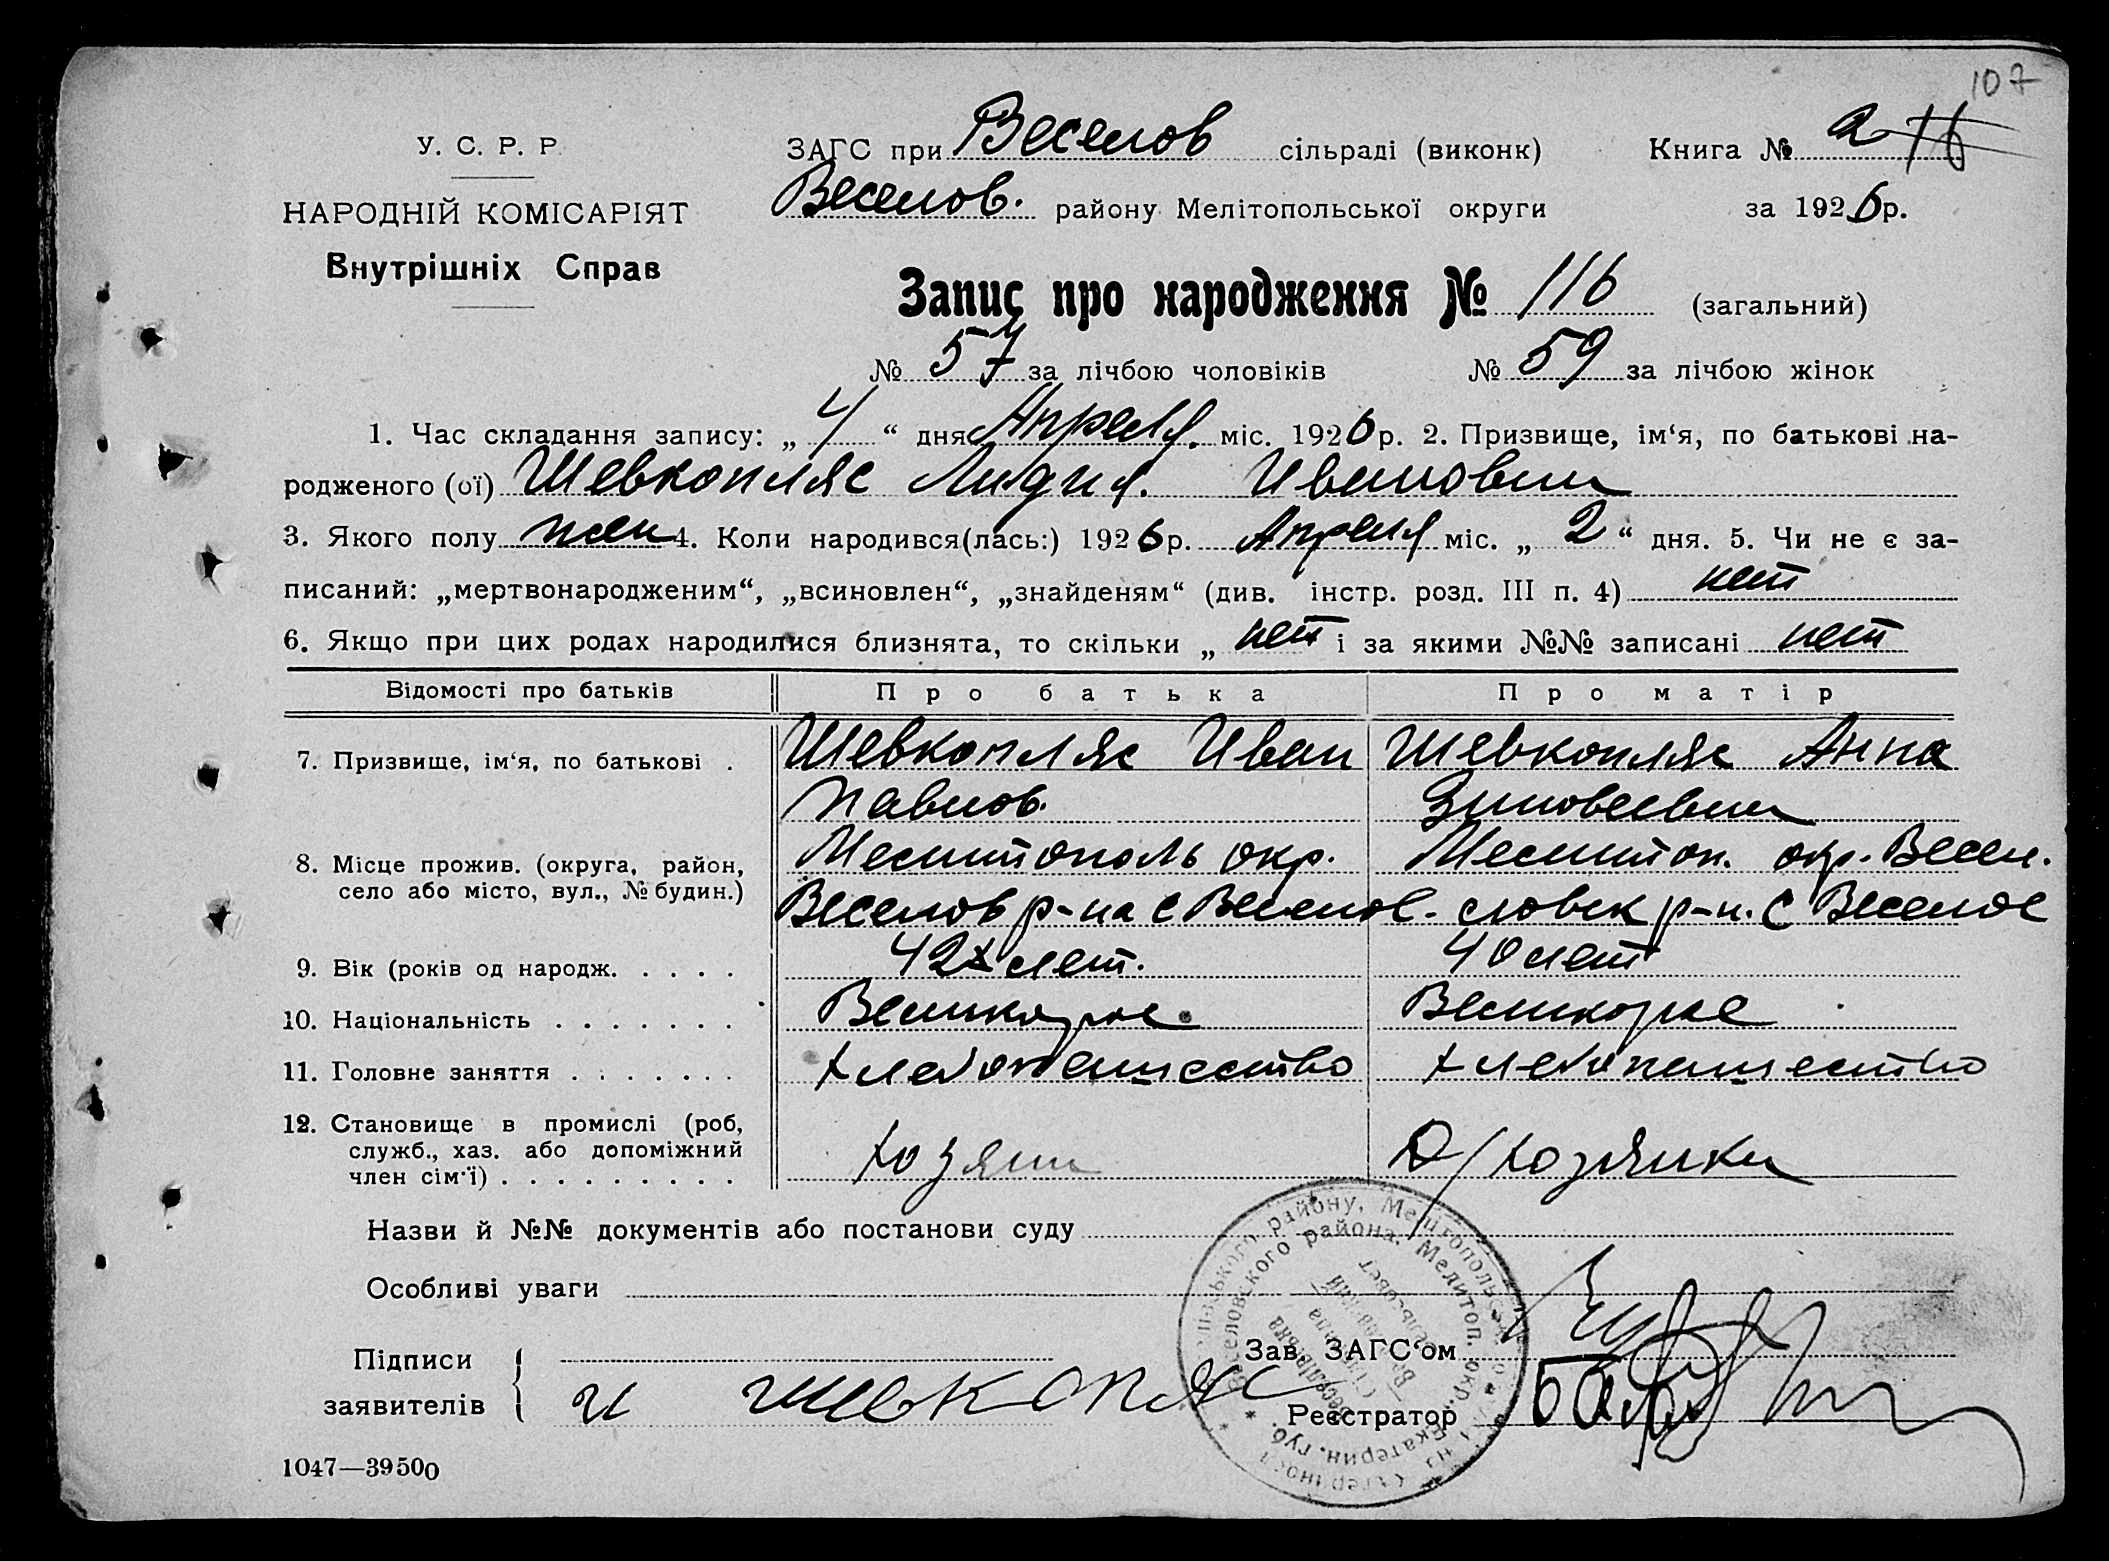 107
У. С. Р. Р.
НАРОДНІЙ КОМІСАРІЯТ
Внутрішніх Справ
ЗАГС при Веселов сільраді (виконк) Книга № 2
Веселов. району Мелітопольської округи за 1926 р.
Запис про народження № 116 (загальний)
№ 57 за лічбою чоловіків № 59 за лічбою жінок
1. Час складання запису: „ 4 “ дня Апреля. міс. 1926 р. 2. Призвище, ім‘я, по батькові на-
родженого (ої) Шевкопляс Лидия. Ивановна
3. Якого полу жен 4. Коли народився(лась:) 1926 р. Апреля міс. „ 2 “ дня. 5. Чи не є за-
писаний: „мертвонародженим“, „всиновлен“, „знайденям“ (див. інстр. розд. III п. 4) нет
6. Якщо при цих родах народилися близнята, то скільки „ нет і за якими №№ записані нет
Відомості про батьків Про батька Про матір
7. Призвище, ім‘я, по батькові . Шевкопляс Иван Шевкопляс Анна
Павлов. Зиновеевна
8. Місце прожив. (округа, район, Мелитополь окр. Мелитоп. окр. Весел.
село або місто, вул., № будин.) Веселов р-на с Веселое. ловск р-н. с Веселое
9. Вік (років од народж. . . . . 42 лет. 40 лет
10. Національність . . . . . . . Великорос. Великорос
11. Головне заняття . . . . . . . Хлебопашество Хлебопашество
12. Становище в промислі (роб,
служб., хаз. або допоміжний Хозяин Д/хозяйка
член сім‘ї) . . . . . . . . .
Назви й №№ документів або постанови суду
Особливі уваги
Підписи
заявителів
и шевкопляс
Зав. ЗАГС‘ом
Реєстратор
Веселовского района. Мелитоп. окр. Екатерин. губ.
1047—39500